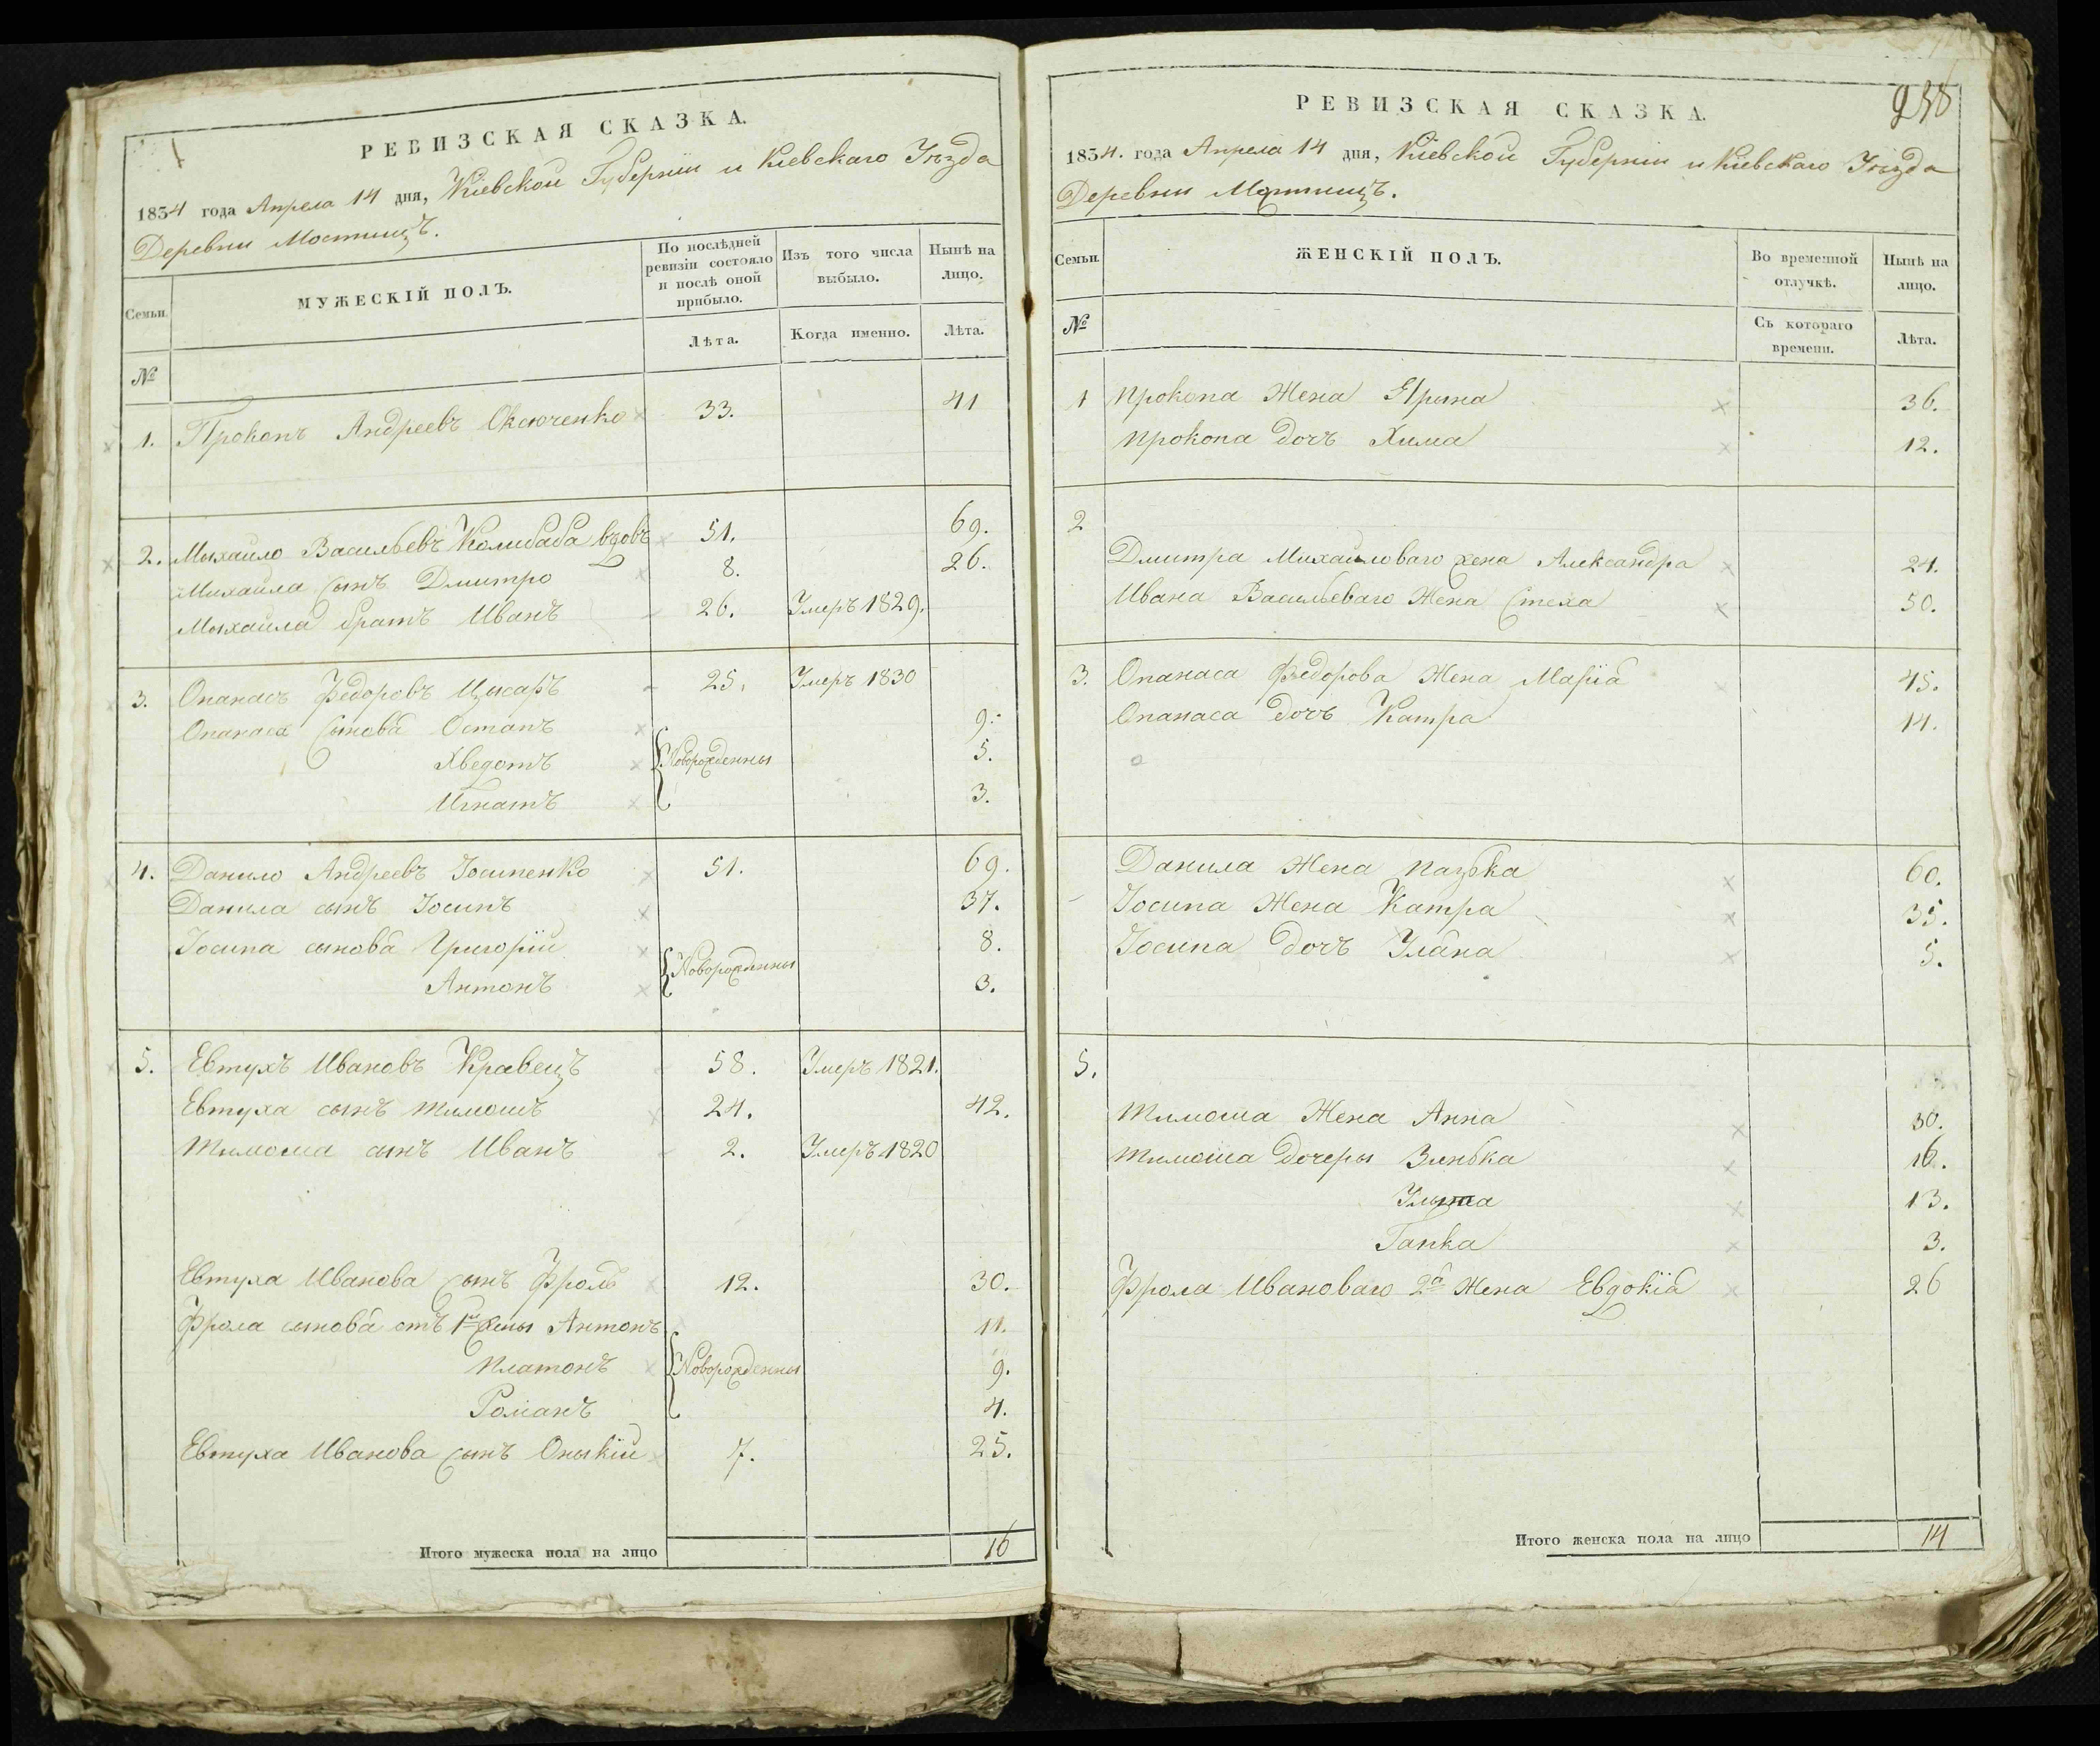 РЕВИЗСКАЯ СКАЗКА.
1834 года Апреля 14 дня, Кіевской Губерніи и Кіевскаго Уѣзда
Деревни Мостищъ.
Семьи.
МУЖЕСКІЙ ПОЛЪ.
По послѣдней ревизіи состояло и послѣ оной прибыло.
Изъ того числа выбыло.
Нынѣ на лицо.
№
Лѣта.
Когда именно.
Лѣта.
1. Прокопъ Андреевъ Оксюченко 33. 41
2. Мыхайло Васильевъ Колибаба вдовъ 51. 69.
Михайла сынъ Дмитро 8. 26.
Мыхайла братъ Иванъ 26. Умеръ 1829.
3. Опанасъ Федоровъ Цысаръ 25. Умеръ 1830
Опанаса сыновя Остапъ 9.
Хведотъ {Новорожденны 5.
Игнатъ 3.
4. Данило Андреевъ Іосипенко 51. 69.
Данила сынъ Іосипъ 37.
Іосипа сыновя Григорій 8.
{Новорожденны
Антонъ 3.
5. Евтухъ Ивановъ Кравецъ 58. Умеръ 1821.
Евтуха сынъ Тимошъ 24. 42.
Тимоша сынъ Иванъ 2. Умеръ 1820
Евтуха Иванова сынъ Фролъ 12. 30.
Фрола сыновя отъ 1й жены Антонъ 11.
Платонъ {Новорожденны 9.
Романъ 4.
Евтуха Иванова сынъ Оныкій 7. 25.
Итого мужеска пола на лицо 16
РЕВИЗСКАЯ СКАЗКА.
1834. года Апреля 14 дня, Кіевской Губерніи и Кіевскаго Уѣзда
Деревни Мостищъ.
Семьи.
ЖЕНСКІЙ ПОЛЪ.
Во временной отлучкѣ.
Нынѣ на лицо.
№
Съ котораго времени.
Лѣта.
1 Прокопа Жена Ярына 36.
Прокопа дочъ Хима 12.
2
Дмитра Михайловаго жена Александра 24.
Ивана Васильеваго Жена Стеха 50.
3. Опанаса Федорова Жена Марія 45.
Опанаса дочъ Катра 14.
Данила Жена Пазька 60.
Іосипа Жена Катра 35.
Іосипа дочъ Уляна 5.
5.
Тимоша Жена Анна 30.
Тимоша дочеры Зинька 16.
13.
Гапка 3.
Фрола Ивановаго 2я Жена Евдокія 26
Итого женска пола на лицо 14